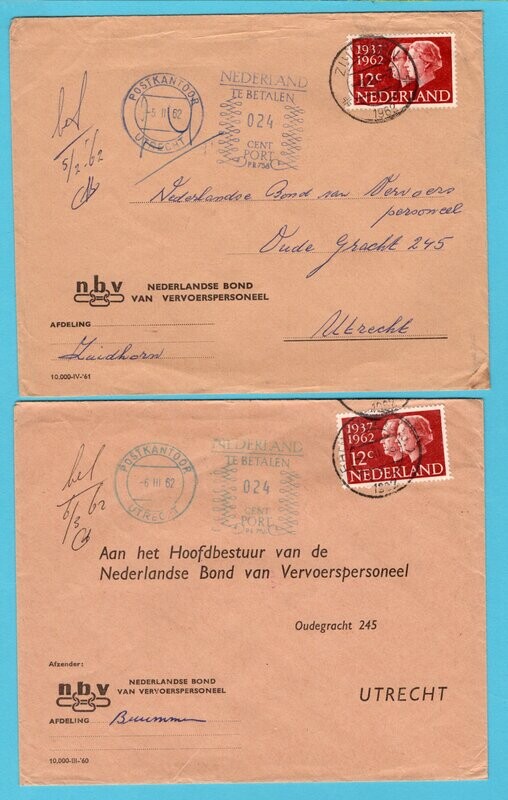 1937
1962
12c
NEDERLAND
1962
POSTKANTOOR
-6 II 62
UTRECHT
NEDERLAND
TE BETALEN
024
CENT
PORT
bet
5/2 '62
Nederlandse Bond van Vervoers
personeel
Oude Gracht 245
Utrecht
nbv
NEDERLANDSE BOND
VAN VERVOERSPERSONEEL
AFDELING
Zuidhorn
10,000-IV-'61
1937
1962
12c
NEDERLAND
POSTKANTOOR
-6 III 62
UTRECHT
NEDERLAND
TE BETALEN
024
CENT
PORT
bet
6/3 62
Aan het Hoofdbestuur van de
Nederlandse Bond van Vervoerspersoneel
Oudegracht 245
UTRECHT
Afzender:
nbv
NEDERLANDSE BOND
VAN VERVOERSPERSONEEL
AFDELING
10,000-III-'60